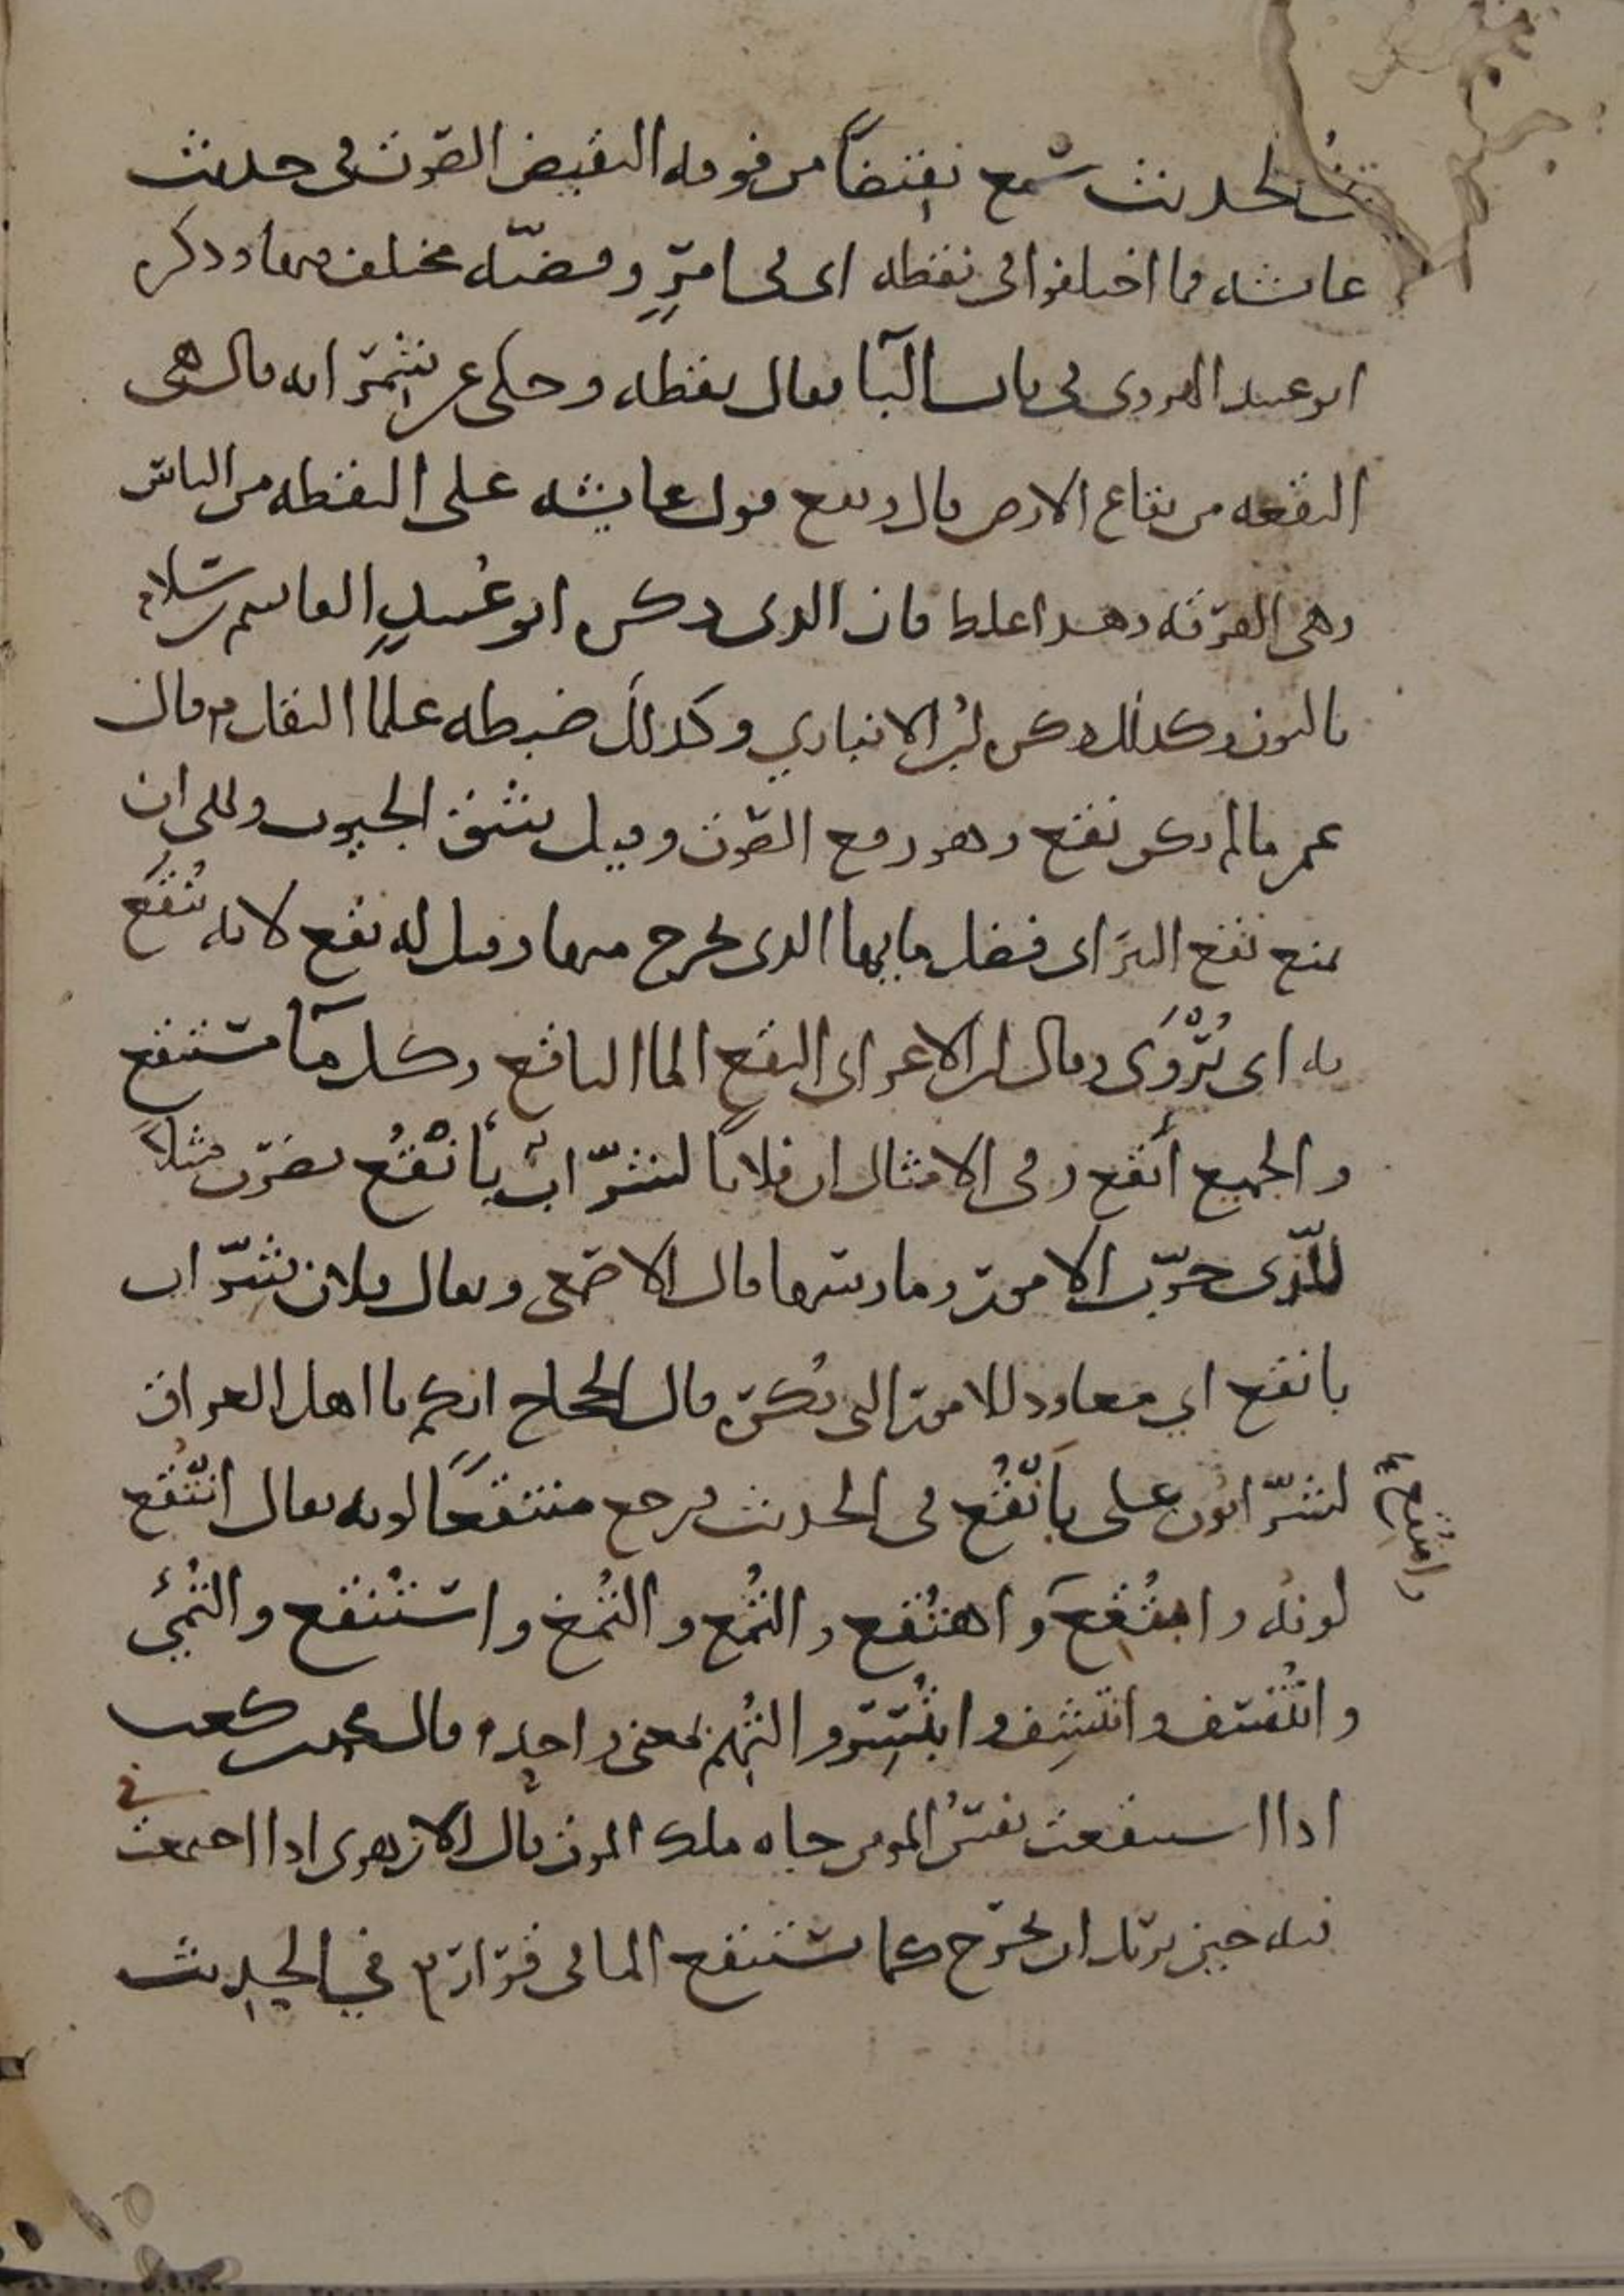 الحديث سمع نقيضًا من فوقه النقيض الصوت في حديث
عائشة فما اختلفوا في نقطة اي في امرٍ وقضيّة مختلف فيها وذكر
ابو عبيد الهروي في باب البا فقال بقطة وحكي عن شمر انه قال هي
البقعة من بقاع الارض قال ويقع قول عائشة على البقطة من الناس
وهي الفرقة وهذا غلط فان الذي ذكره ابو عُبيدٍ القاسم بن سلام
بالنون وكذلك ذكره ابن الانباري وكذلك ضبطه علما النقل م قال
عمر ما لم يكن نقع وهو رفع الصوت وقيل شق الجيوب ونهى ان
يمنع نقع البئر اي فضل مايها الذي يخرج منها وقيل له نقع لانه يُنقَع
به اي يُرْوَى وقال ابن الاعرابي النقع الما الناقع وكل ما مستنقع
والجميع أنقع وفي الامثال ان فلانا لشرّاب بأنْقُع يضرب مثلا
للّذي جرّب الامور ومارسها قال الاصمعي ويقال فلان شرّاب
بانقع اي معاود للامور التي تكره قال الحجاج انكم يا اهل العراق
لشرّابون على بأنقُع في الحديث فرجع منتقعًا لونه يقال انتُقع
لونه وامتُقِعَ واهتُقع والتُمع والتُمغ واستُنقع والتُمئ
وانتُسف وانتشِف وابتُسِر والتُهم بمعنى واحد م قال محمد بن كعب
اذا استنقعت نفس المومن جاه ملك الموت قال الازهري اذا اجتمعت في
فيه حين يريد ان يخرج كما يستنقع الما في قراره م في الحديث